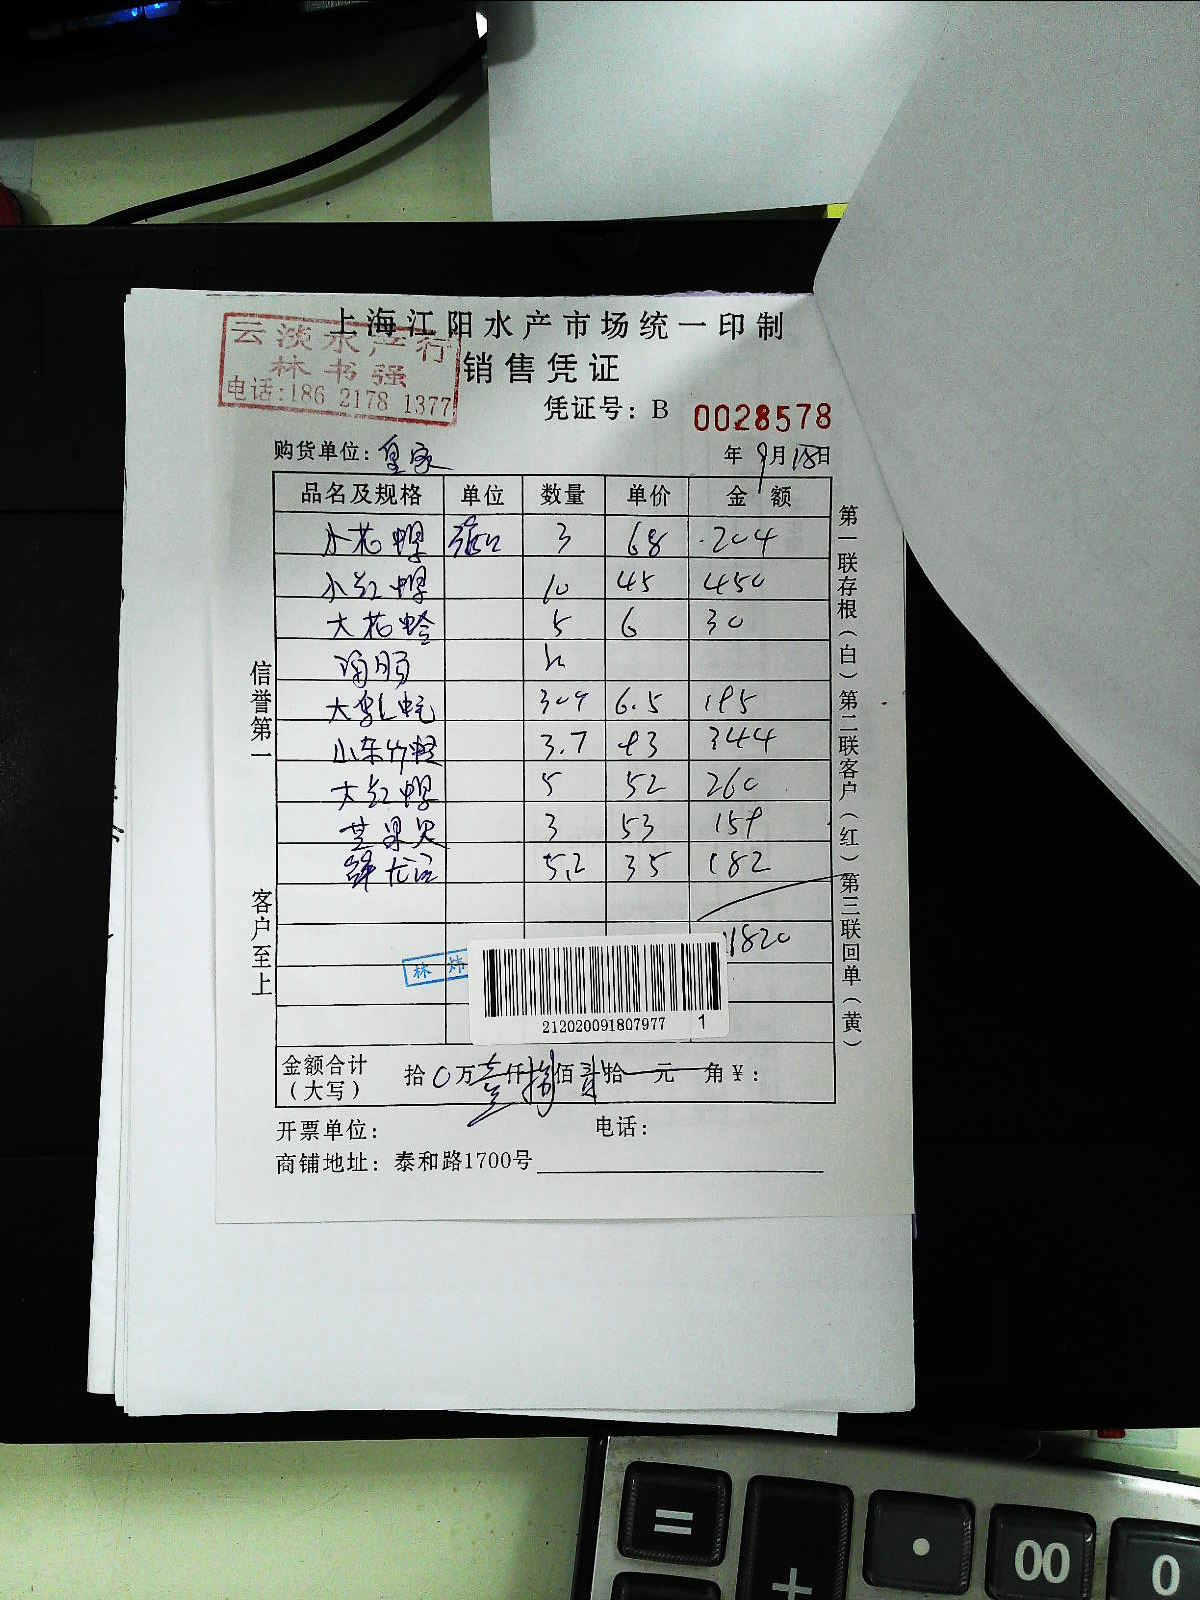 上海江阳水产市场统一印制
云淡水产行
林书强
电话:186 2178 1377
销售凭证
凭证号: B 0028578
购货单位: 皇家 年 9月18日
品名及规格 单位 数量 单价 金额
小花蛤 3 68 204
小红 10 45 450
大花蛤 5 6 30
大 30个 6.5 195
山东竹蛏 3.7 93 344
大红 5 52 260
苹果贝 3 53 159
5.2 35 182
1820
林 炜
212020091807977 1
金额合计(大写) 拾0万壹仟捌佰贰拾元角¥:
开票单位: 电话:
商铺地址: 泰和路1700号
信誉第一 客户至上
第一联存根(白)第二联客户(红)第三联回单(黄)
=
+
.
00
0